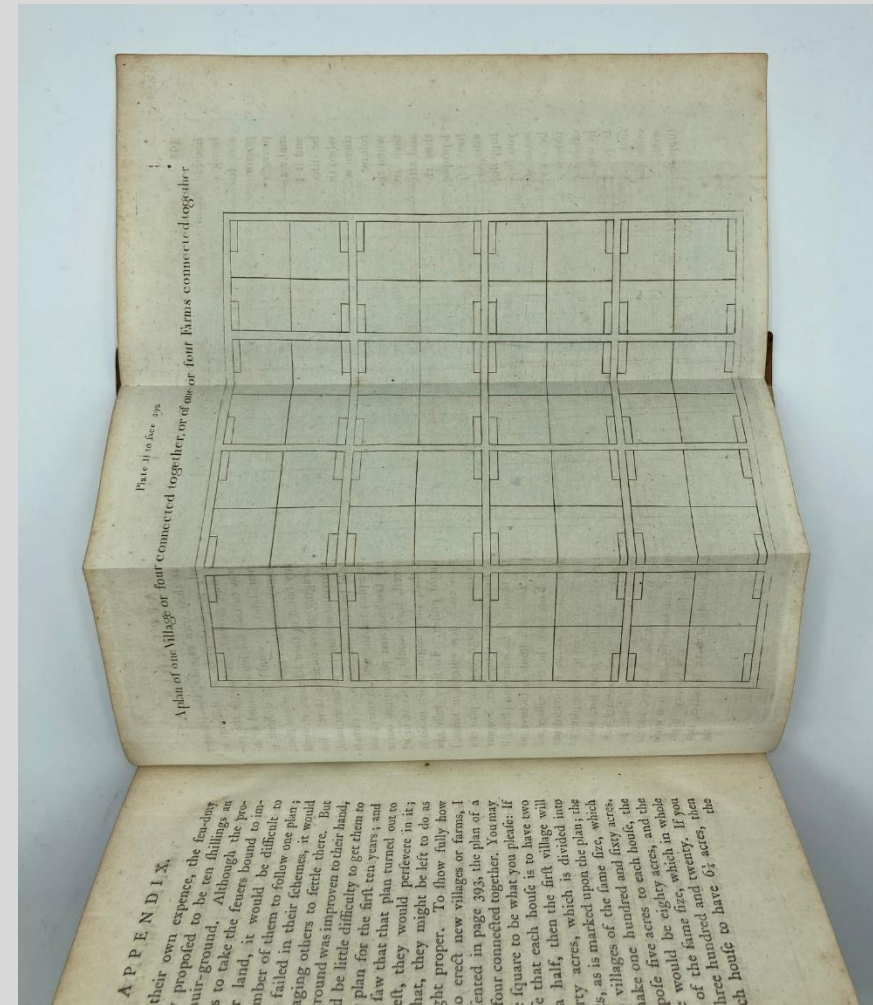 Plate II to face 392
A plan of one Village or four connected together, or of one or four Farms connected together
APPENDIX.
their own expence, the feu-duty
propoſed to be ten ſhillings an
uir-ground. Although the pro-
s to take the feuers bound to im-
r land, it would be difficult to
mber of them to follow one plan;
failed in their ſchemes, it would
aging others to ſettle there. But
round was improven to their hand,
d be little difficulty to get them to
plan for the firſt ten years; and
ſaw that that plan turned out to
eſt, they would perſevere in it;
hat, they might be left to do as
ght proper. To ſhow fully how
o erect new villages or farms, I
ented in page 393, the plan of a
four connected together. You may
ſquare to be what you pleaſe: If
e that each houſe is to have two
a half, then the firſt village will
rty acres, which is divided into
s, as is marked upon the plan; the
villages of the ſame ſize, which
make one hundred and ſixty acres,
poſe five acres to each houſe, the
would be eighty acres, and the
of the ſame ſize, which in whole
three hundred and twenty. If you
then
ch houſe to have 6¼ acres, the